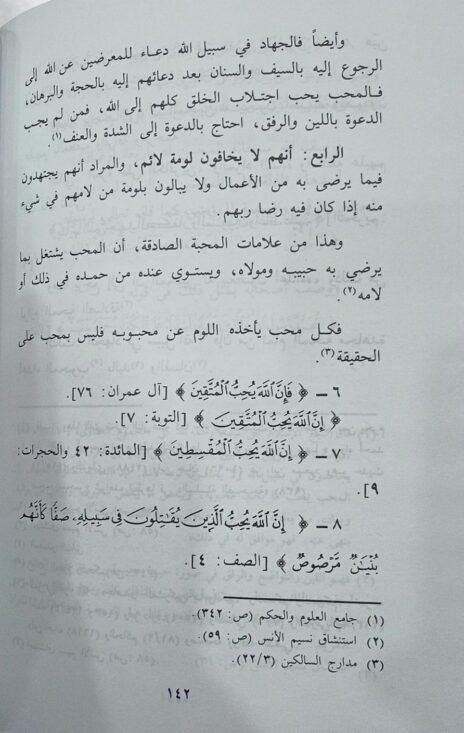 وأيضاً فالجهاد في سبيل الله دعاء للمعرضين عن الله إلى
الرجوع إليه بالسيف والسنان بعد دعائهم إليه بالحجة والبرهان،
فالمحب يحب اجتلاب الخلق كلهم إلى الله، فمن لم يجب
الدعوة باللين والرفق، احتاج بالدعوة إلى الشدة والعنف(١).
الرابع: أنهم لا يخافون لومة لائم، والمراد أنهم يجتهدون
فيما يرضى به من الأعمال ولا يبالون بلومة من لامهم في شيء
منه إذا كان فيه رضا ربهم.
وهذا من علامات المحبة الصادقة، أن المحب يشتغل بما
يرضي به حبيبه ومولاه، ويستوي عنده من حمده في ذلك أو
لامه(٢).
فكل محب يأخذه اللوم عن محبوبه فليس بمحب على
الحقيقة(٣).
٦ ـ ﴿ فَإِنَّ اللَّهَ يُحِبُّ الْمُتَّقِينَ ﴾ [آل عمران: ٧٦].
﴿ إِنَّ اللَّهَ يُحِبُّ الْمُتَّقِينَ ﴾ [التوبة: ٧].
٧ ـ ﴿ إِنَّ اللَّهَ يُحِبُّ الْمُقْسِطِينَ ﴾ [المائدة: ٤٢ والحجرات:
٩].
٨ ـ ﴿ إِنَّ اللَّهَ يُحِبُّ الَّذِينَ يُقَاتِلُونَ فِي سَبِيلِهِ صَفًّا كَأَنَّهُم
بُنْيَانٌ مَّرْصُوصٌ ﴾ [الصف: ٤].
(١) جامع العلوم والحكم (ص: ٣٤٢).
(٢) استنشاق نسيم الأنس (ص: ٥٩).
(٣) مدارج السالكين (٢٢/٣).
١٤٢